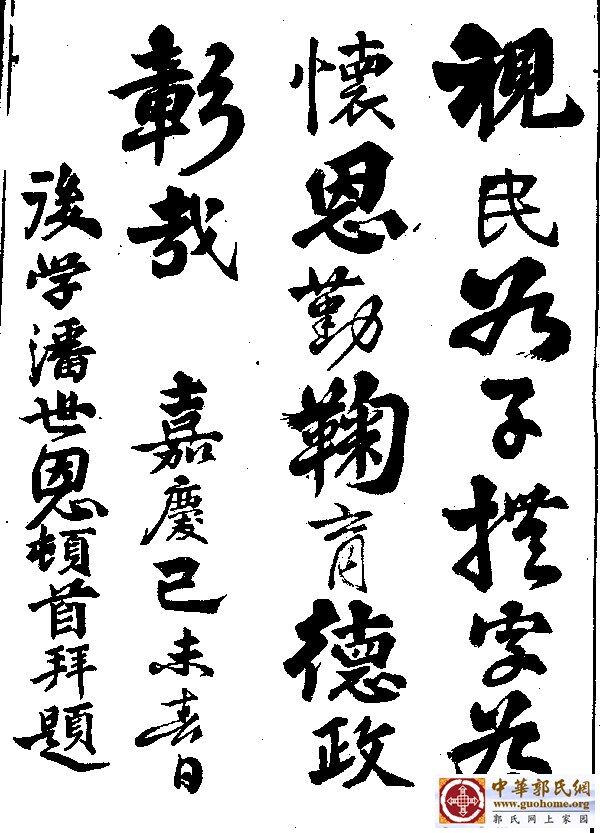 視民為子撫字為
懷恩勤鞠育德政
彰哉 嘉慶己未春日
後学潘世恩頓首拜題
中華郭氏網
www.guohome.org
郭氏网上家园